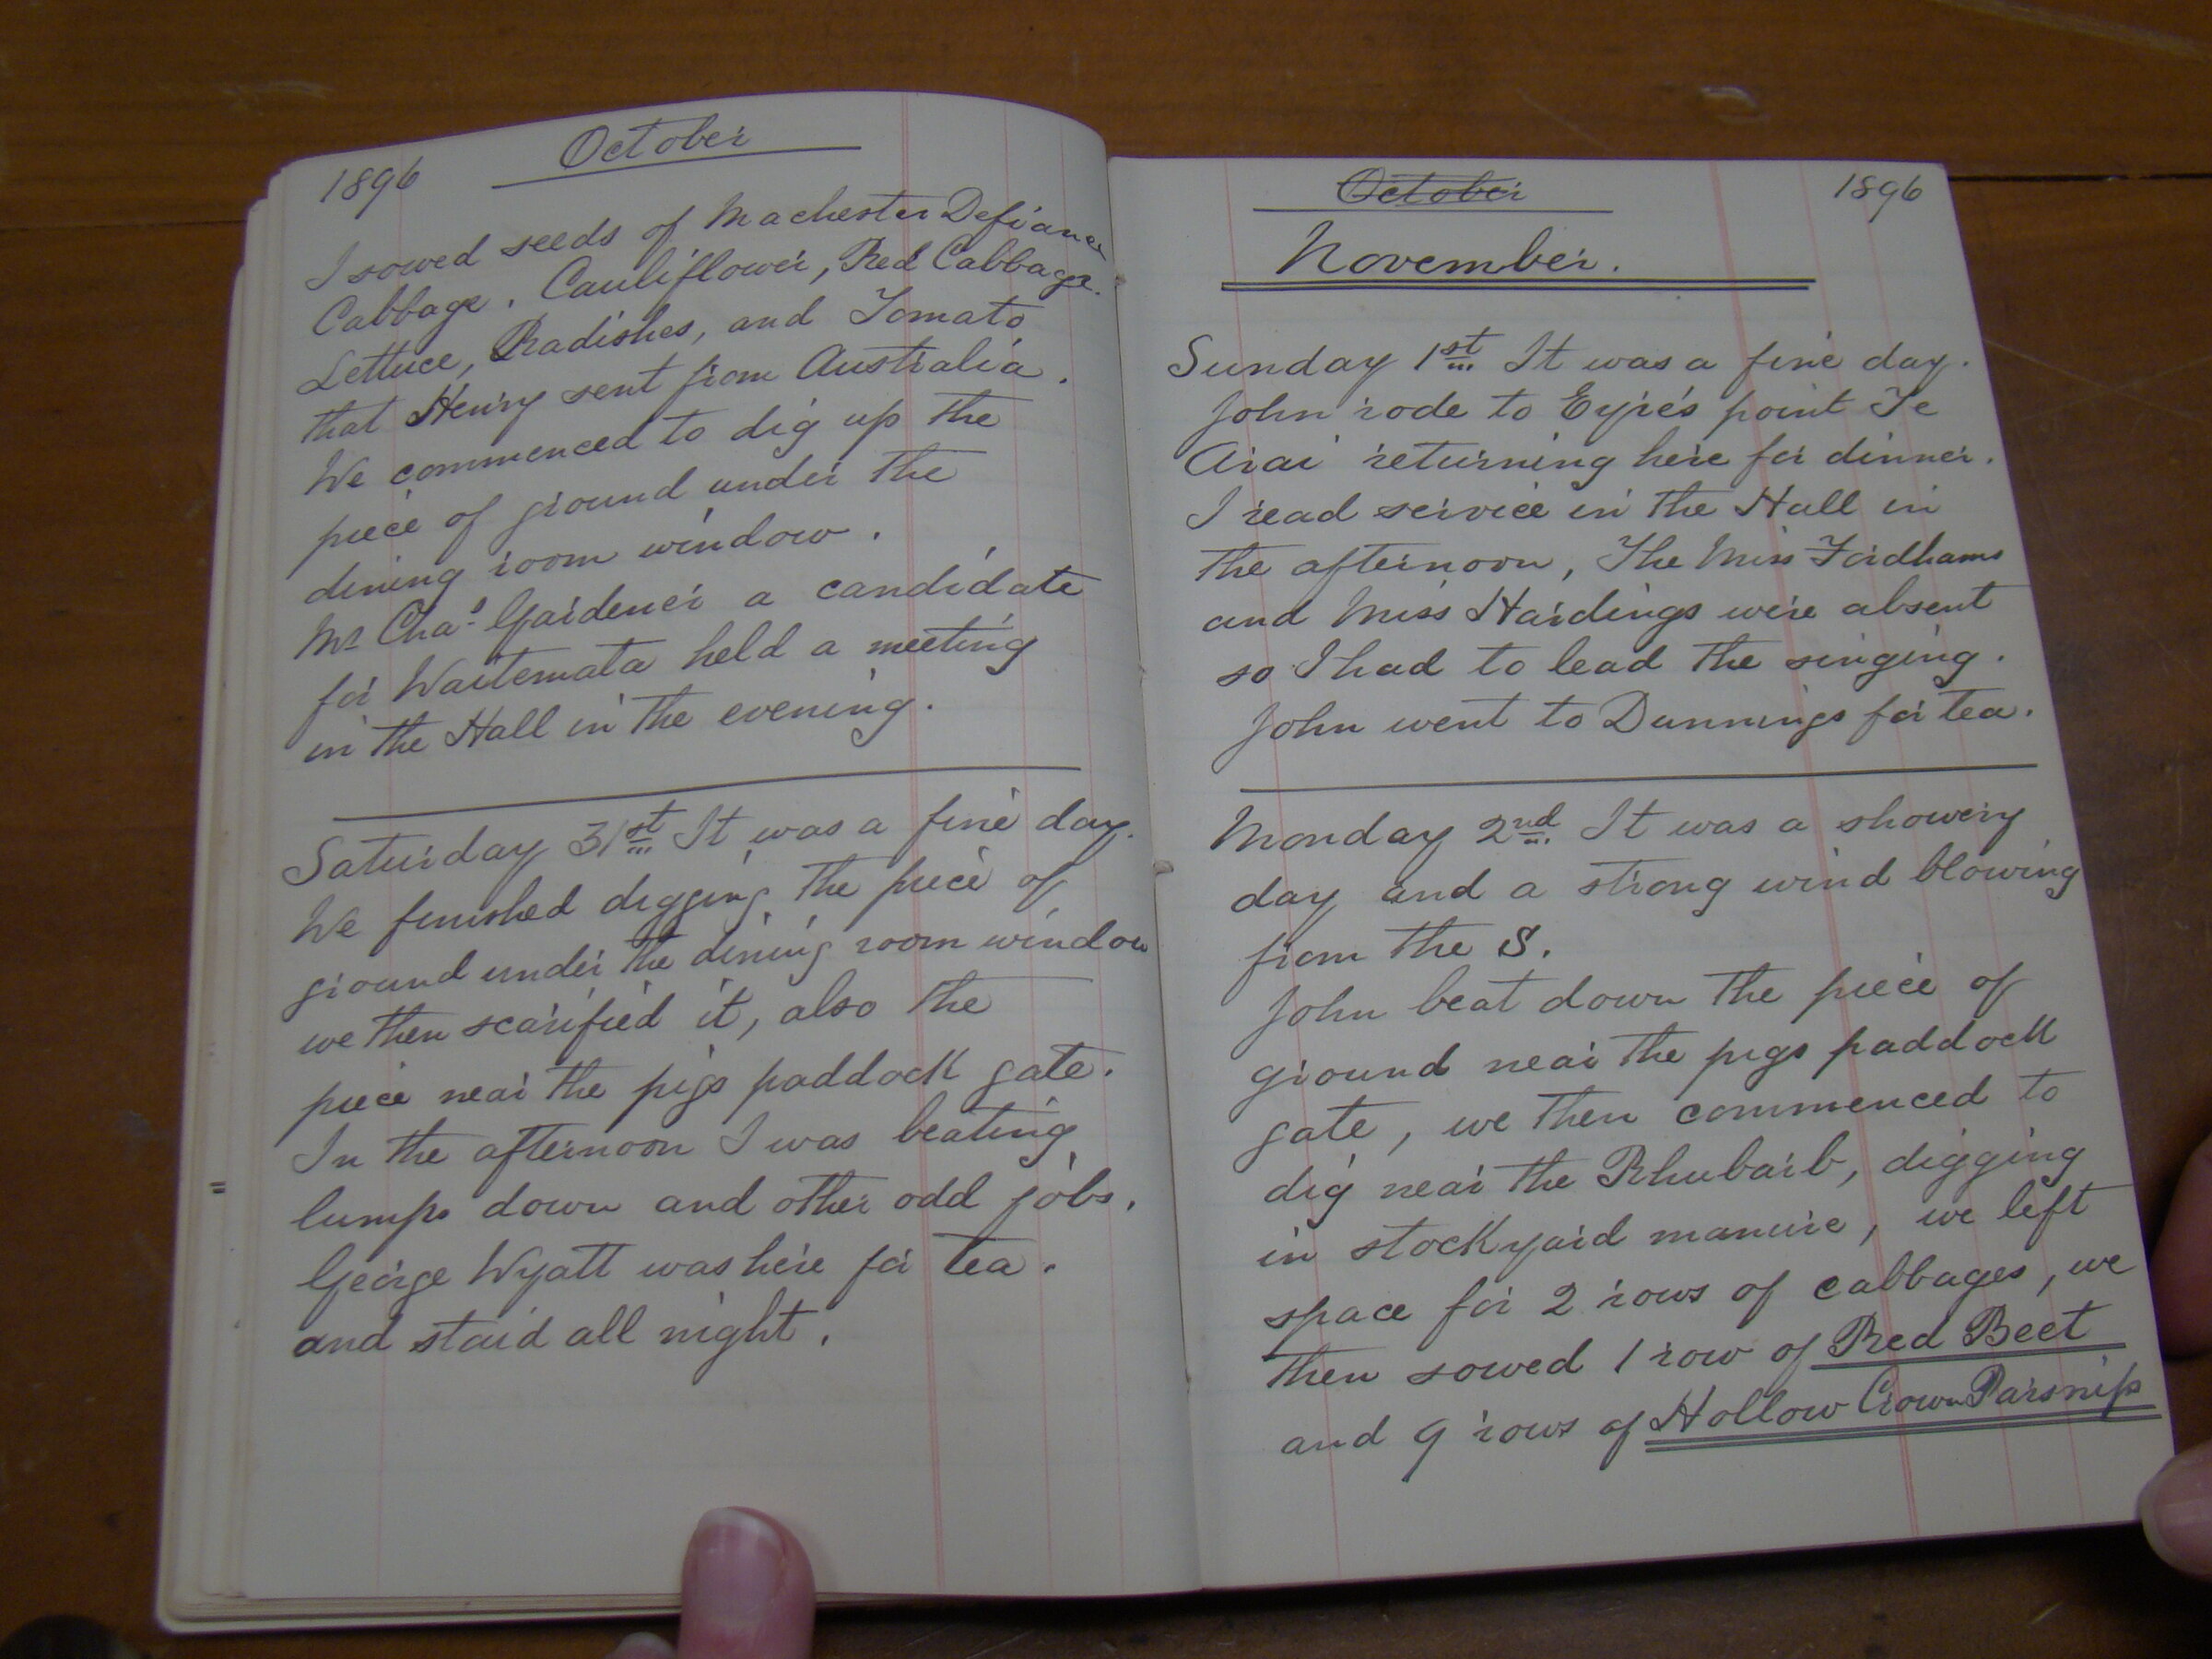 1896
October
I sowed seeds of Machester Defiance
Cabbage, Cauliflower, Red Cabbage.
Lettuce, Radishes, and Tomato
that Henry sent from Australia.
We commenced to dig up the
piece of ground under the
dining room window.
Mr Chas Gardener a candidate
for Waitemata held a meeting
in the Hall in the evening.
Saturday 31st It was a fine day.
We finished digging the piece of
ground under the dining room window
we then scarified it, also the
piece near the pigs paddock gate.
In the afternoon I was beating
lumps down and other odd jobs.
George Wyatt was here for tea.
and staid all night.
October
1896
November.
Sunday 1st It was a fine day.
John rode to Eyre's point Te
Arai returning here for dinner.
I read service in the Hall in
the afternoon, The Miss Fordhams
and Miss Hardings were absent
so I had to lead the singing.
John went to Dunnings for tea.
Monday 2nd. It was a showery
day and a strong wind blowing
from the S.
John beat down the piece of
ground near the pigs paddock
gate, we then commenced to
dig near the Rhubarb, digging
in stockyard manure, we left
space for 2 rows of cabbages, we
then sowed 1 row of Red Beet
and 9 rows of Hollow Crown Parsnip